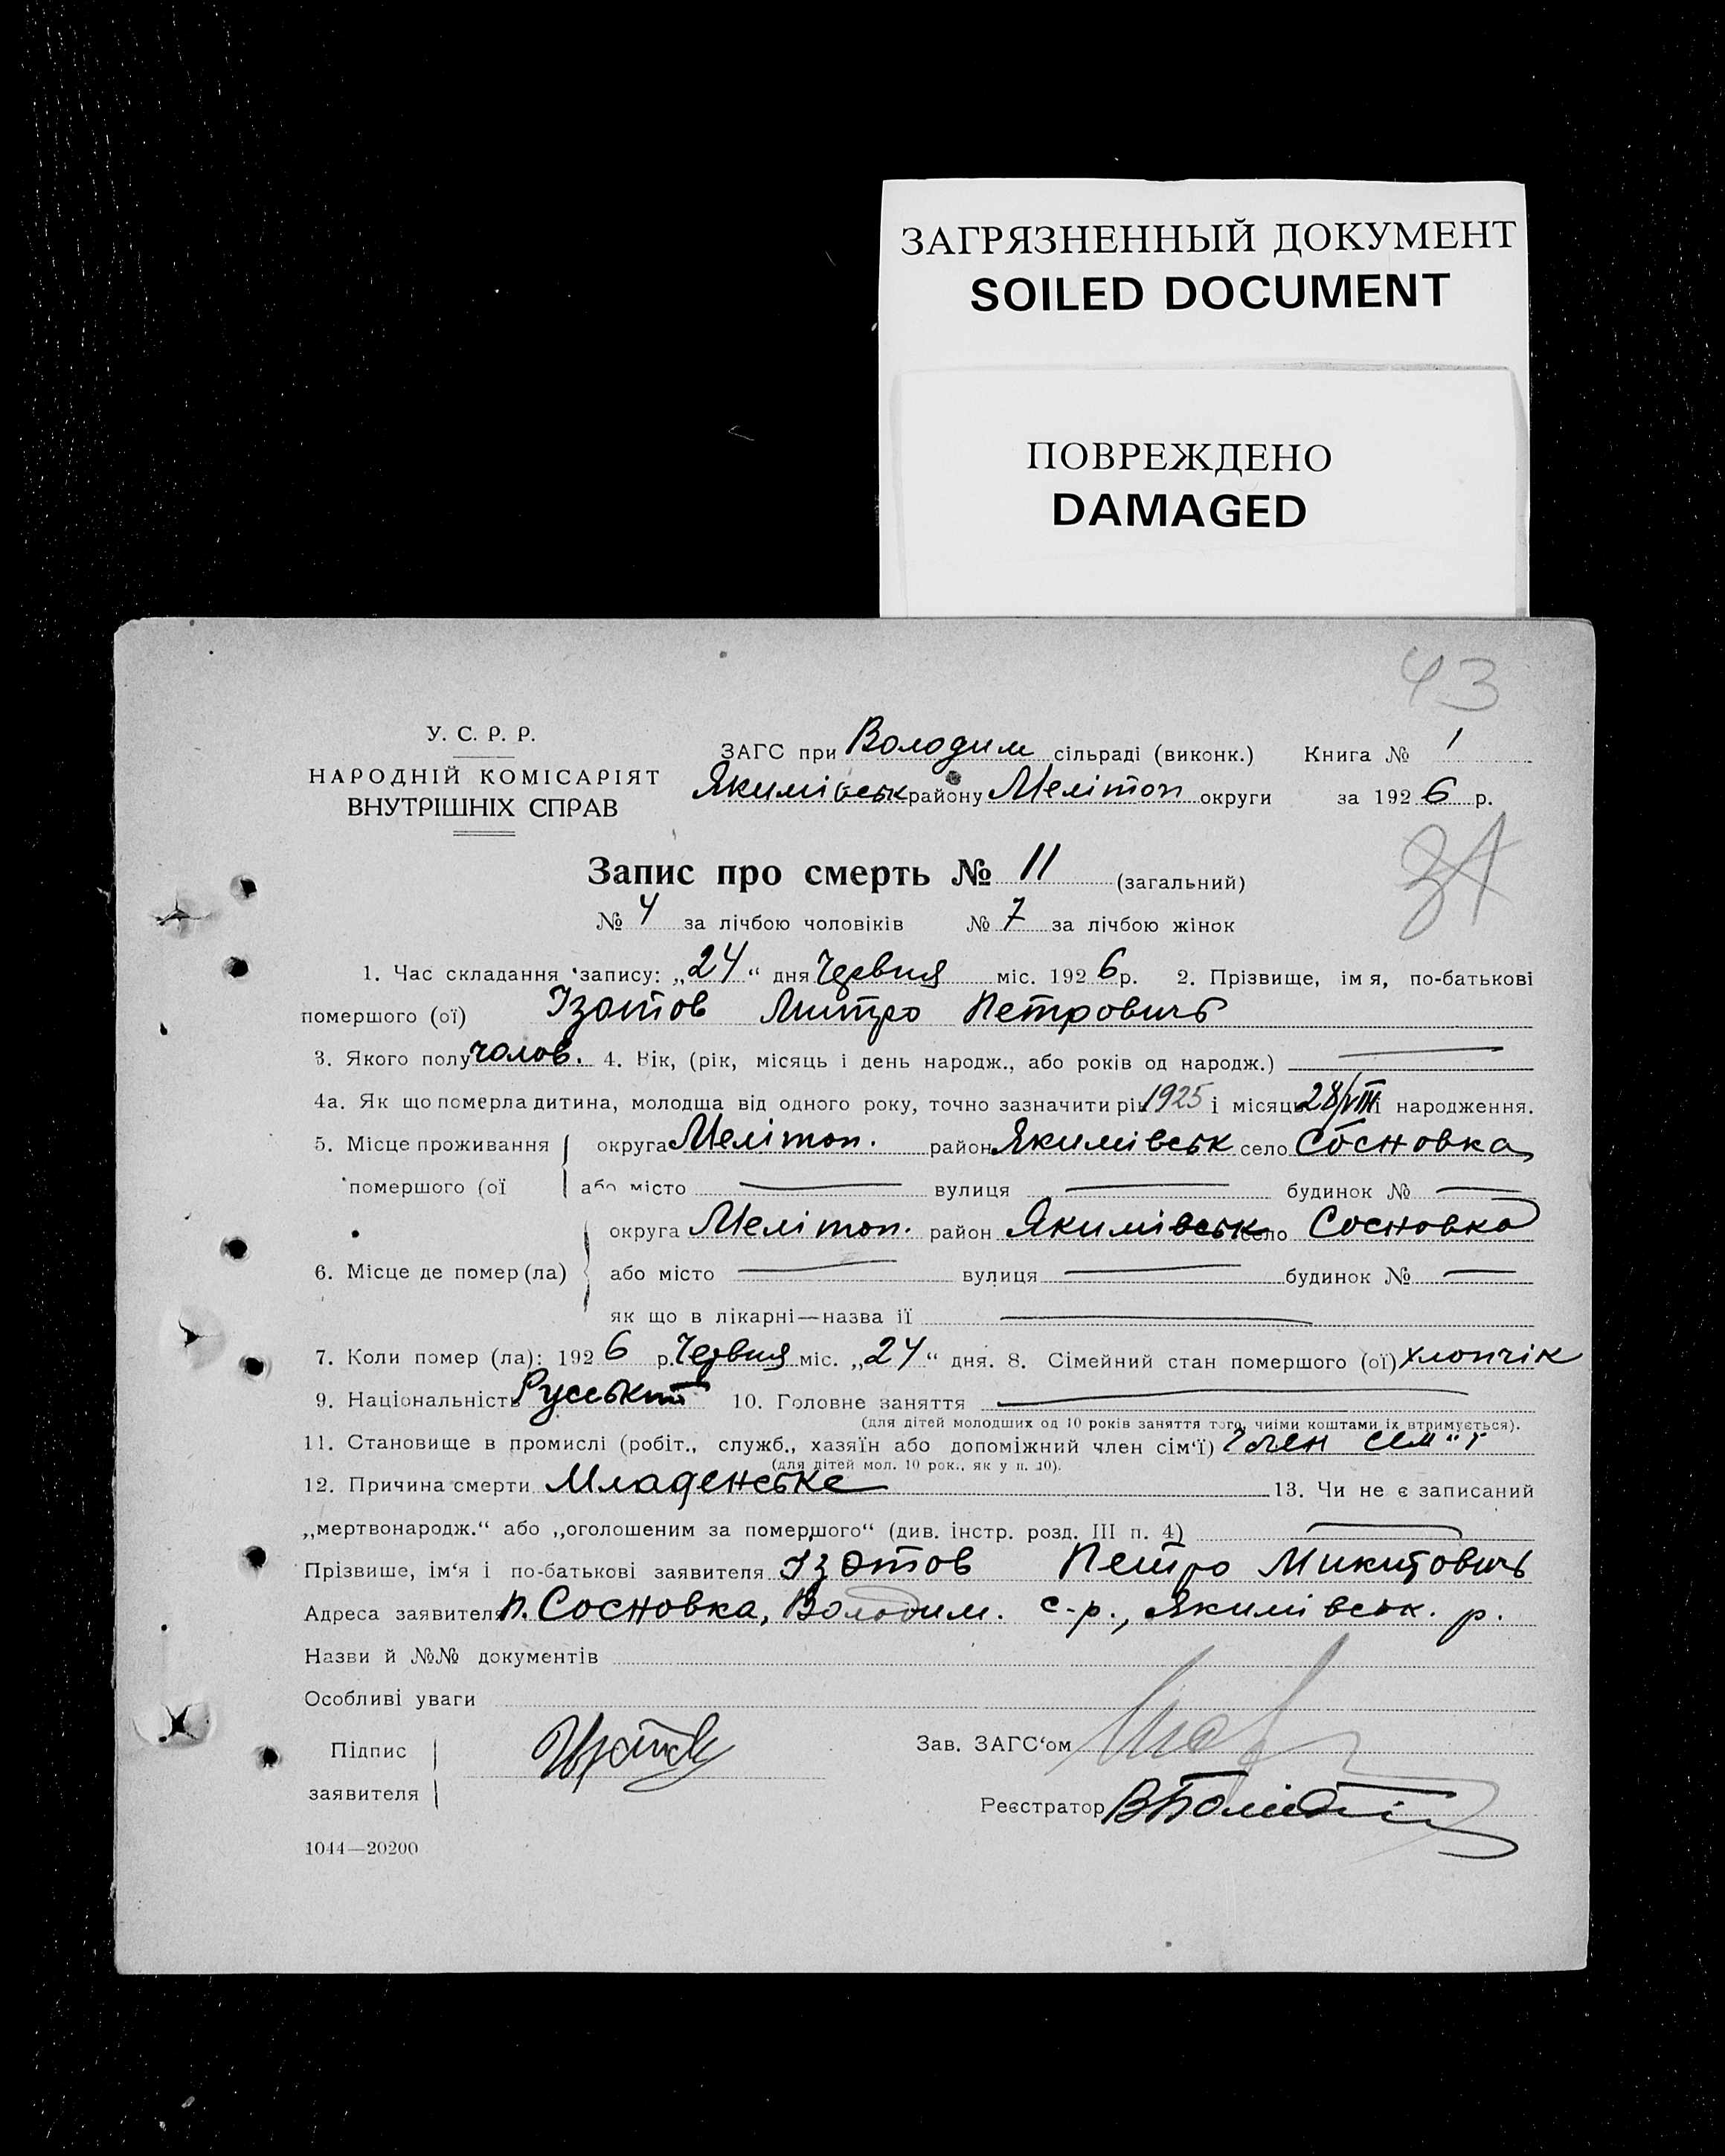 ЗАГРЯЗНЕННЫЙ ДОКУМЕНТ
SOILED DOCUMENT
ПОВРЕЖДЕНО
DAMAGED
43
У. С. Р. Р.
НАРОДНІЙ КОМІСАРІЯТ
ВНУТРІШНІХ СПРАВ
ЗАГС при Володим сільраді (виконк.) Книга № 1
Якимівськ району Мелітоп округи за 1926 р.
31
Запис про смерть № 11 (загальний)
№ 4 за лічбою чоловіків № 7 за лічбою жінок
1. Час складання запису: „24“ дня Червня міс. 1926 р. 2. Прізвище, імя, по-батькові
помершого (ої) Ізотов Митро Петровичь
3. Якого полу чолов. 4. Вік, (рік, місяць і день народж., або років од народж.)
4а. Як що померла дитина, молодша від одного року, точно зазначити рік 1925 і місяць 28/VIII народження.
5. Місце проживання округа Мелітоп. район Якимівськ село Сосновка
помершого (ої або місто вулиця будинок №
округа Мелітоп. район Якимівськ село Сосновка
6. Місце де помер (ла) або місто вулиця будинок №
як що в лікарні—назва її
7. Коли помер (ла): 1926 р. Червня міс. „24“ дня. 8. Сімейний стан помершого (ої) хлопчік
9. Національність Руський 10. Головне заняття
(для дітей молодших од 10 років заняття того, чиїми коштами їх втримується).
11. Становище в промислі (робіт., служб., хазяїн або допоміжний член сім‘ї) Член сем"ї
(для дітей мол. 10 рок., як у п. 10).
12. Причина смерти Младенське 13. Чи не є записаний
„мертвонародж.“ або „оголошеним за помершого“ (див. інстр. розд. III п. 4)
Прізвише, ім‘я і по-батькові заявителя Ізотов Петро Микитовичь
Адреса заявителя п. Сосновка, Володим. с-р., Якимівськ. р.
Назви й №№ документів
Особливі уваги
Підпис
заявителя
Зав. ЗАГС‘ом
Реєстратор
1044—20200